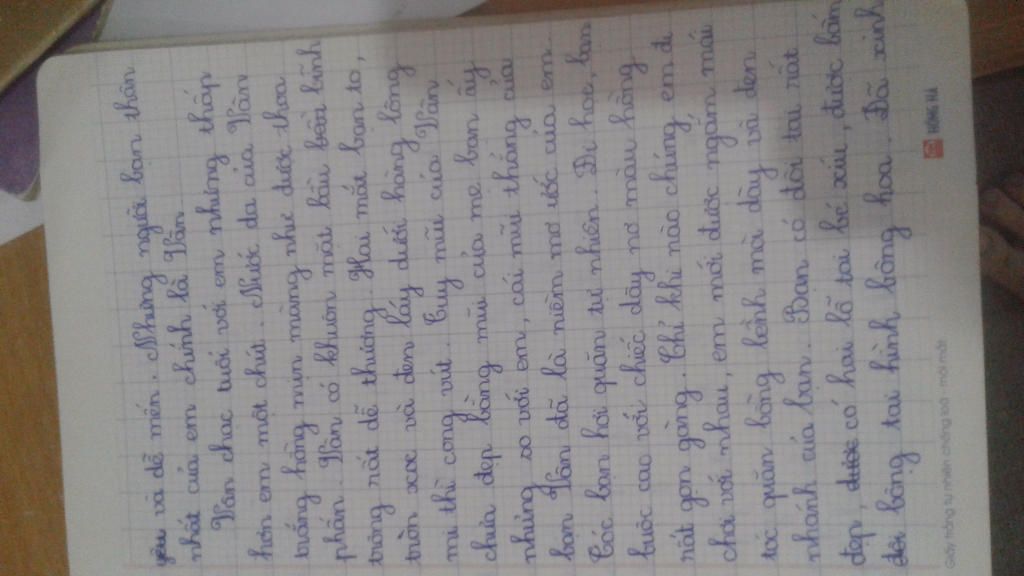 yêu và dễ mến. Những người bạn thân
nhất của em chính là Vân.
Vân chạc tuổi với em nhưng thấp
hơn em một chút. Nước da của Vân
trắng hồng mịn màng như được thoa
phấn. Vân có khuôn mặt bầu bĩnh
trông rất dễ thương. Hai mắt bạn to,
tròn xoe và đen láy dưới hàng lông
mi thì cong vút. Tuy mũi của Vân
chưa đẹp bằng mũi của mẹ bạn ấy
nhưng so với em, cái mũi thẳng của
bạn Vân đã là niềm mơ ước của em.
Tóc bạn hơi quăn tự nhiên. Đi học, bạn
buộc cao với chiếc dây nơ màu hồng
rất gọn gàng. Chỉ khi nào chúng em đi
chơi với nhau, em mới được ngắm mái
tóc quăn bồng bềnh mà dày và đen
nhánh của bạn. Bạn có đôi tai rất
đẹp, có hai lỗ tai bé xíu, được bấm
đôi bông tai hình bông hoa. Đã xinh
Giấy trắng tự nhiên chống loá - mỏi mắt
HỒNG HÀ